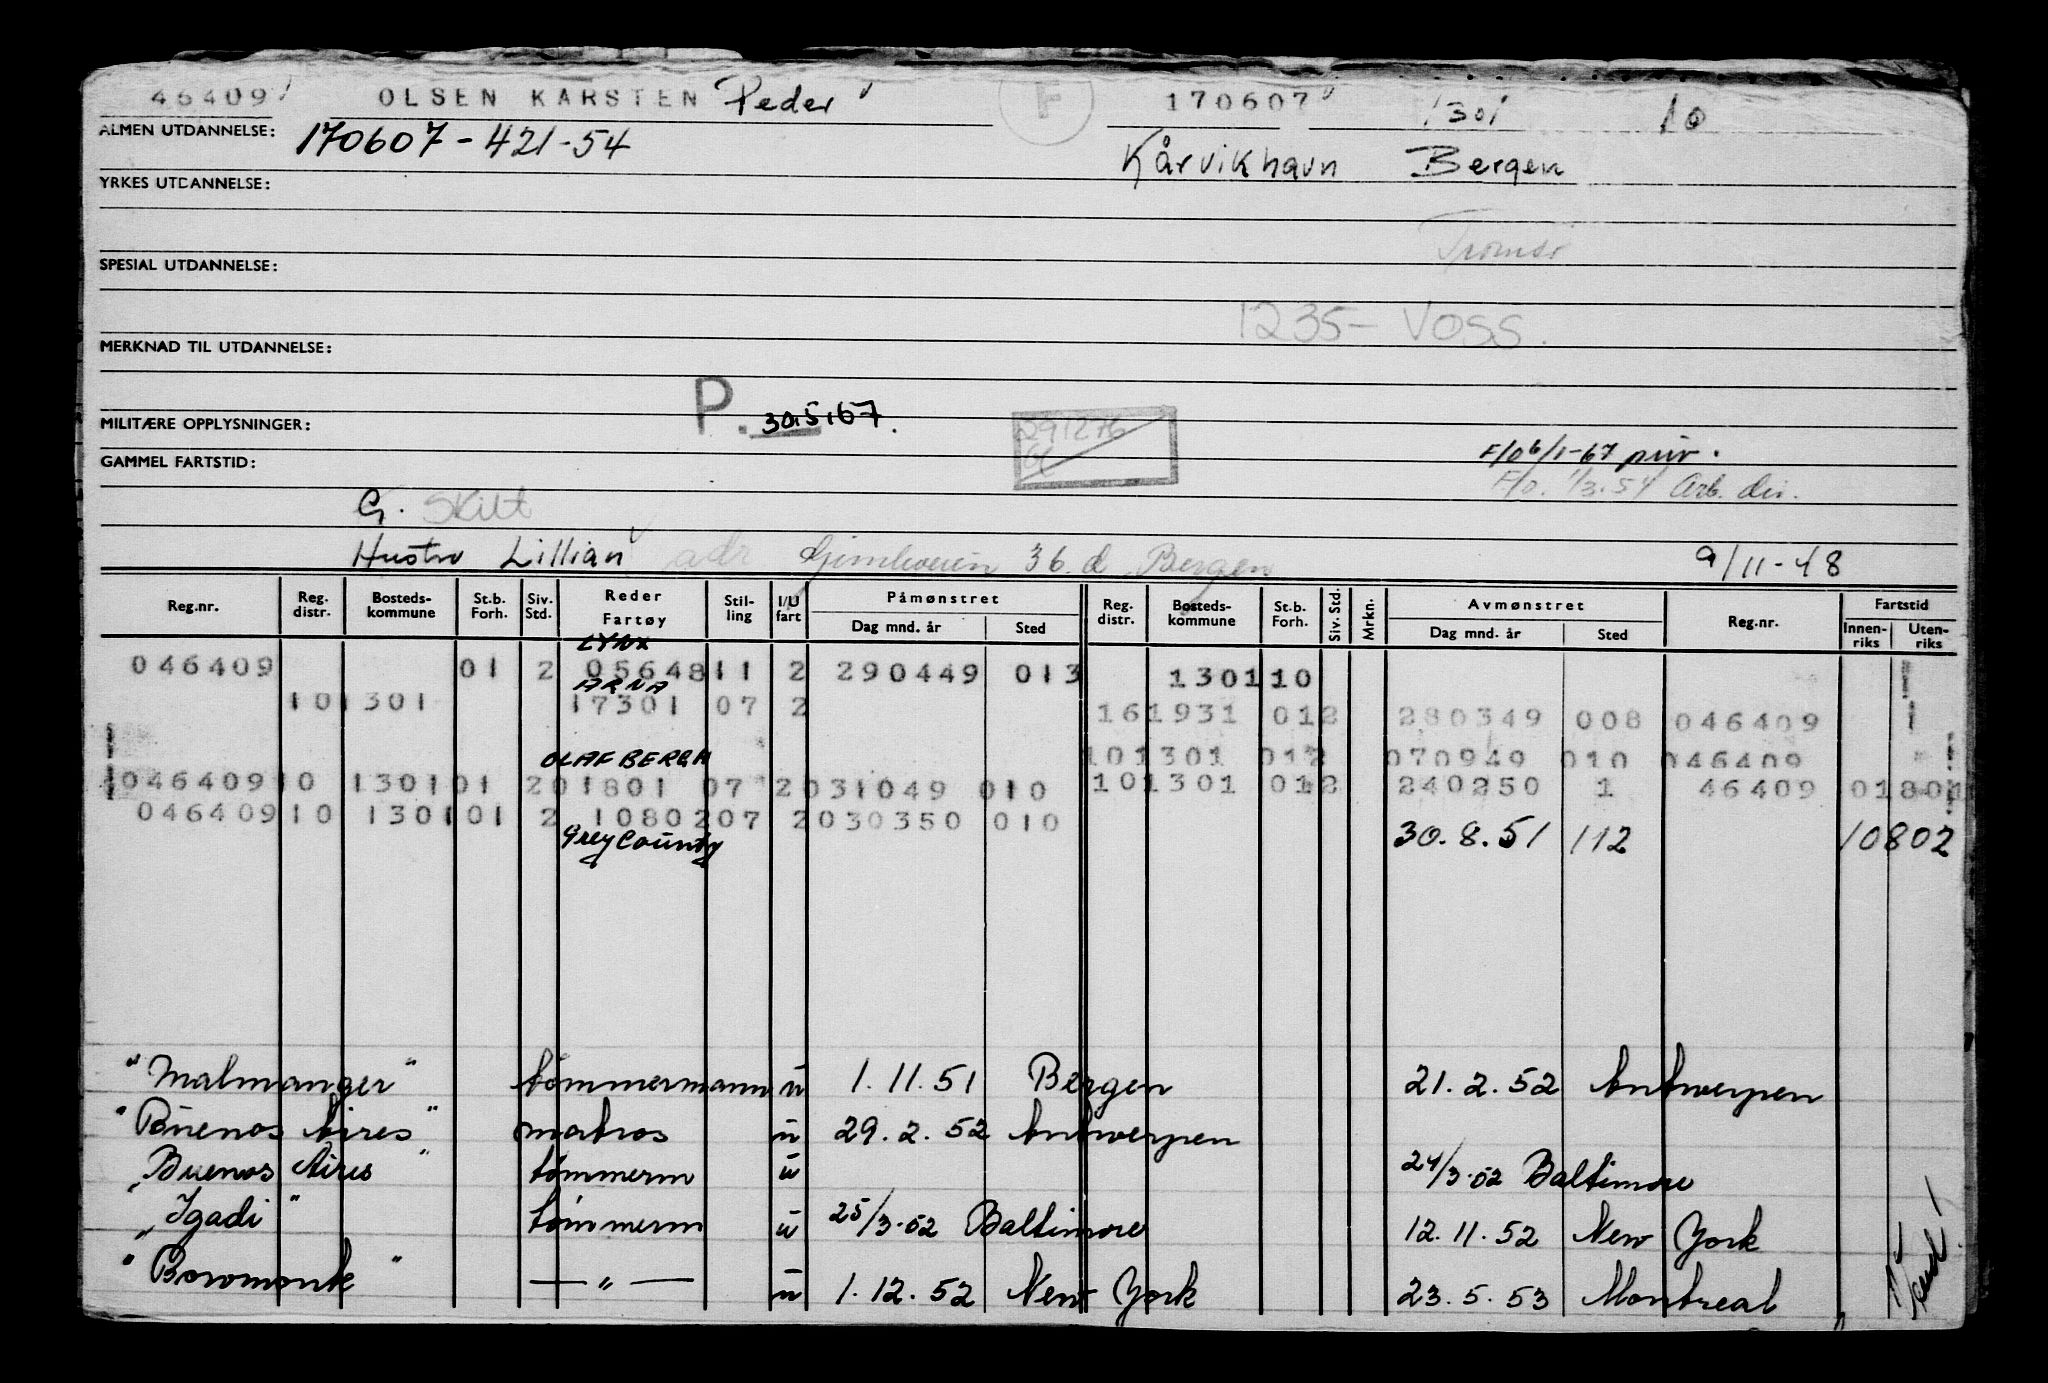 46409 OLSEN KARSTEN Peder F 170607 1301 10
ALMEN UTDANNELSE: 170607-421-54 Kårvikhavn Bergen
YRKES UTDANNELSE:
Tromsø
SPESIAL UTDANNELSE:
1235- VOSS.
MERKNAD TIL UTDANNELSE:
P. 30.5.67.
MILITÆRE OPPLYSNINGER: 291276
F/o 6/1-67 priv.
GAMMEL FARTSTID:
F/o. 1/3.54 Arb. dir.
G. Skilt
Hustru Lillian adr Gimleveien 36.d Bergen 9/11-48
Reg.nr. Reg. distr. Bosteds-kommune St.b. Forh. Siv. Std. Reder Fartøy Stil-ling I/U fart Påmønstret Dag mnd. år Sted Reg. distr. Bosteds-kommune St.b. Forh. Siv. Std. Mrkn. Avmønstret Dag mnd. år Sted Reg.nr. Fartstid Innen-riks Uten-riks
LYNX
046409 01 2 05648 11 2 290449 013 1301 10
ARNA
10 1301 17301 07 2 16 1931 01 2 280349 008 046409
OLAF BERGH 10 1301 01 2 070949 010 046409
046409 10 1301 01 2 01801 07 2 031049 010 10 1301 01 2 240250 1 46409 01801
046409 10 1301 01 2 10802 07 2 030350 010
Grey County 30.8.51 112 10802
"Malmanger" tømmermann u 1.11.51 Bergen 21.2.52 Antwerpen
"Buenos Aires" matros u 29.2.52 Antwerpen
"Buenos Aires" tømmerm u 24/3-52 Baltimore
"Igadi" tømmerm u 25/3-52 Baltimore 12.11.52 New York
"Bowmonk" — " — u 1.12.52 New York 23.5.53 Montreal